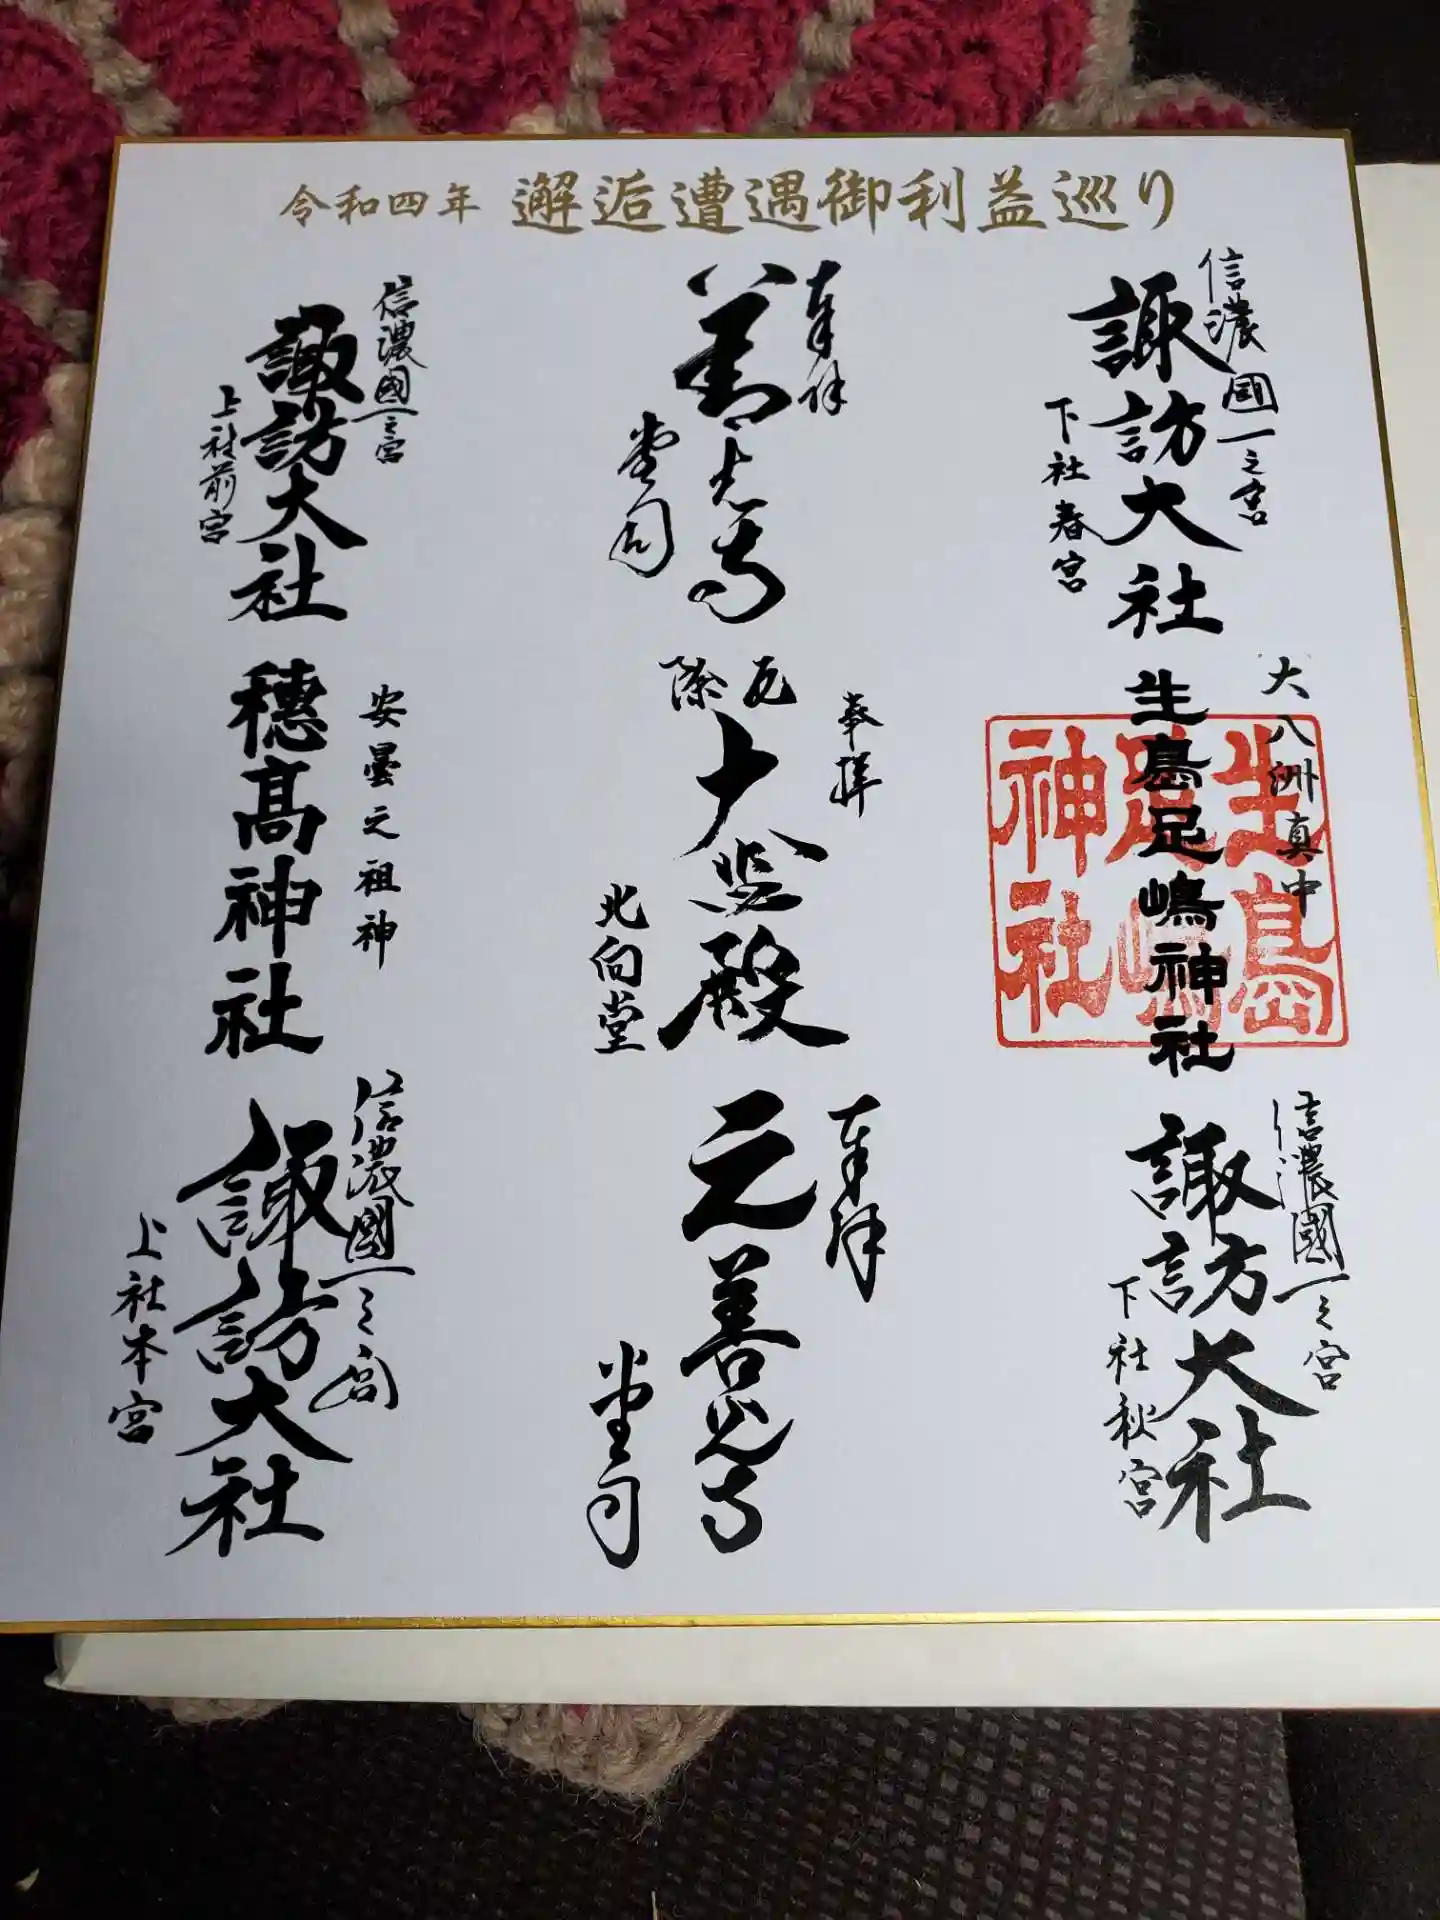 令和四年 邂逅遭遇御利益巡り
信濃國一之宮
諏訪大社
下社春宮
大八洲真中
生島足嶋神社
生島足嶋神社
信濃國一之宮
諏訪大社
下社秋宮
奉拝
善光寺
堂司
奉拝
厄除
大悲殿
北向堂
奉拝
元善光寺
堂司
信濃國一之宮
諏訪大社
上社前宮
安曇之祖神
穂髙神社
信濃國一之宮
諏訪大社
上社本宮